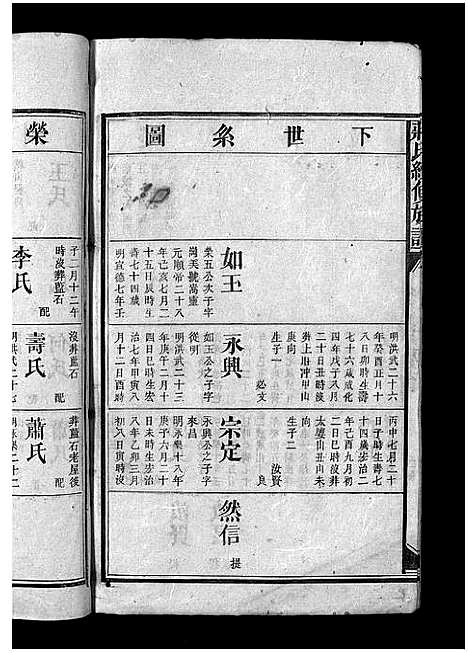 氏續修族譜
下世系圖
如玉
榮五公次子字
崗美號嵩靈
元順帝二十八
年己亥七月二
十五日辰時生
壽七十四歲
明宣德七年壬
永興
如玉公之子字
從明
明洪武二十三
年庚午二月十
四日巳時生宏
治七年甲寅六
月十二日酉時
宗定
永興公之子字
來昌
明永樂十八年
庚子六月二十
日未時生宏治
八年乙卯三月
初八日寅時沒
然信
提
明洪武二十六
年癸酉正月十
八日卯時生壽
七十六歲成化
四年戊子八月
二十日丑時沒
葬上坳冲甲山
庚向
生子一
必文
丙申七月二十
日子時生壽七
十四歲宏治二
年己酉九月初
二日巳時沒葬
太婆山丑山未
向
生子二
汝賢
良
榮
子二月十二午
時沒葬藍石
李氏
配
沒葬藍石
壽氏
配
明洪武二十七
葬藍石老屋後
蕭氏
配